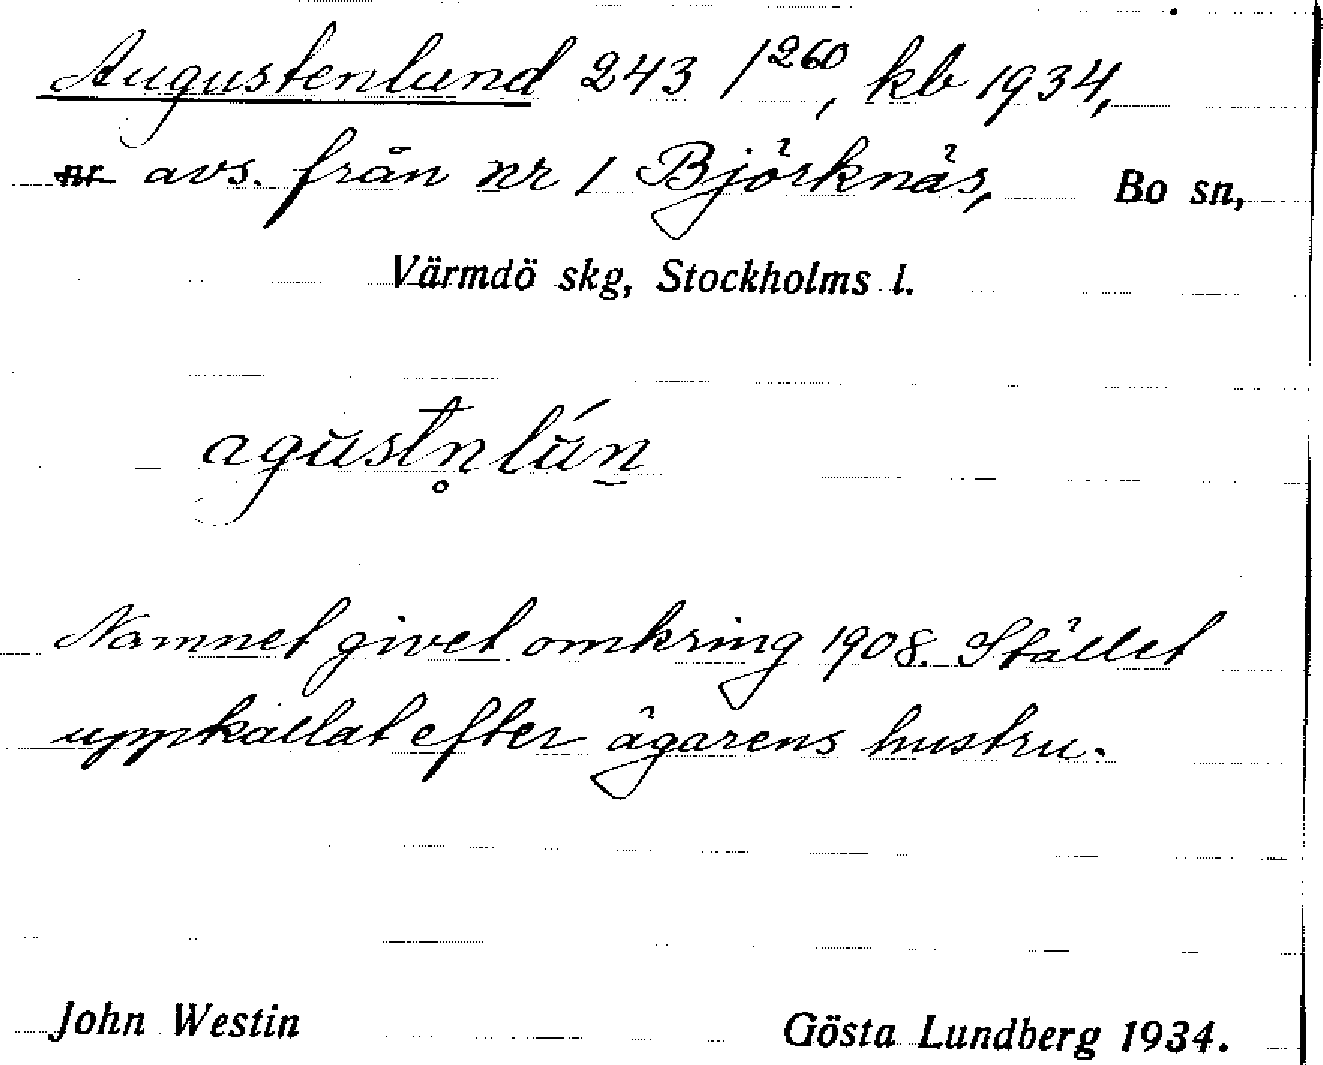 Augustenlund 243 /260, kb 1934,
nr avs. från nr 1 Björknäs, Bo sn,
Värmdö skg, Stockholms l.
agŭstn̥lún̲
Namnet givet omkring 1908. Stället
uppkallat efter ägarens hustru.
John Westin Gösta Lundberg 1934.